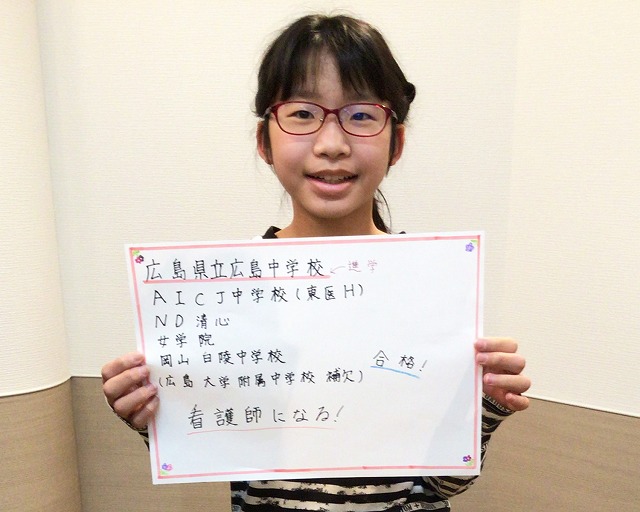 広島県立広島中学校 ← 進学
AICJ中学校(東医H)
ND清心
女学院
岡山白陵中学校
(広島大学附属中学校 補欠)
合格!
看護師になる!